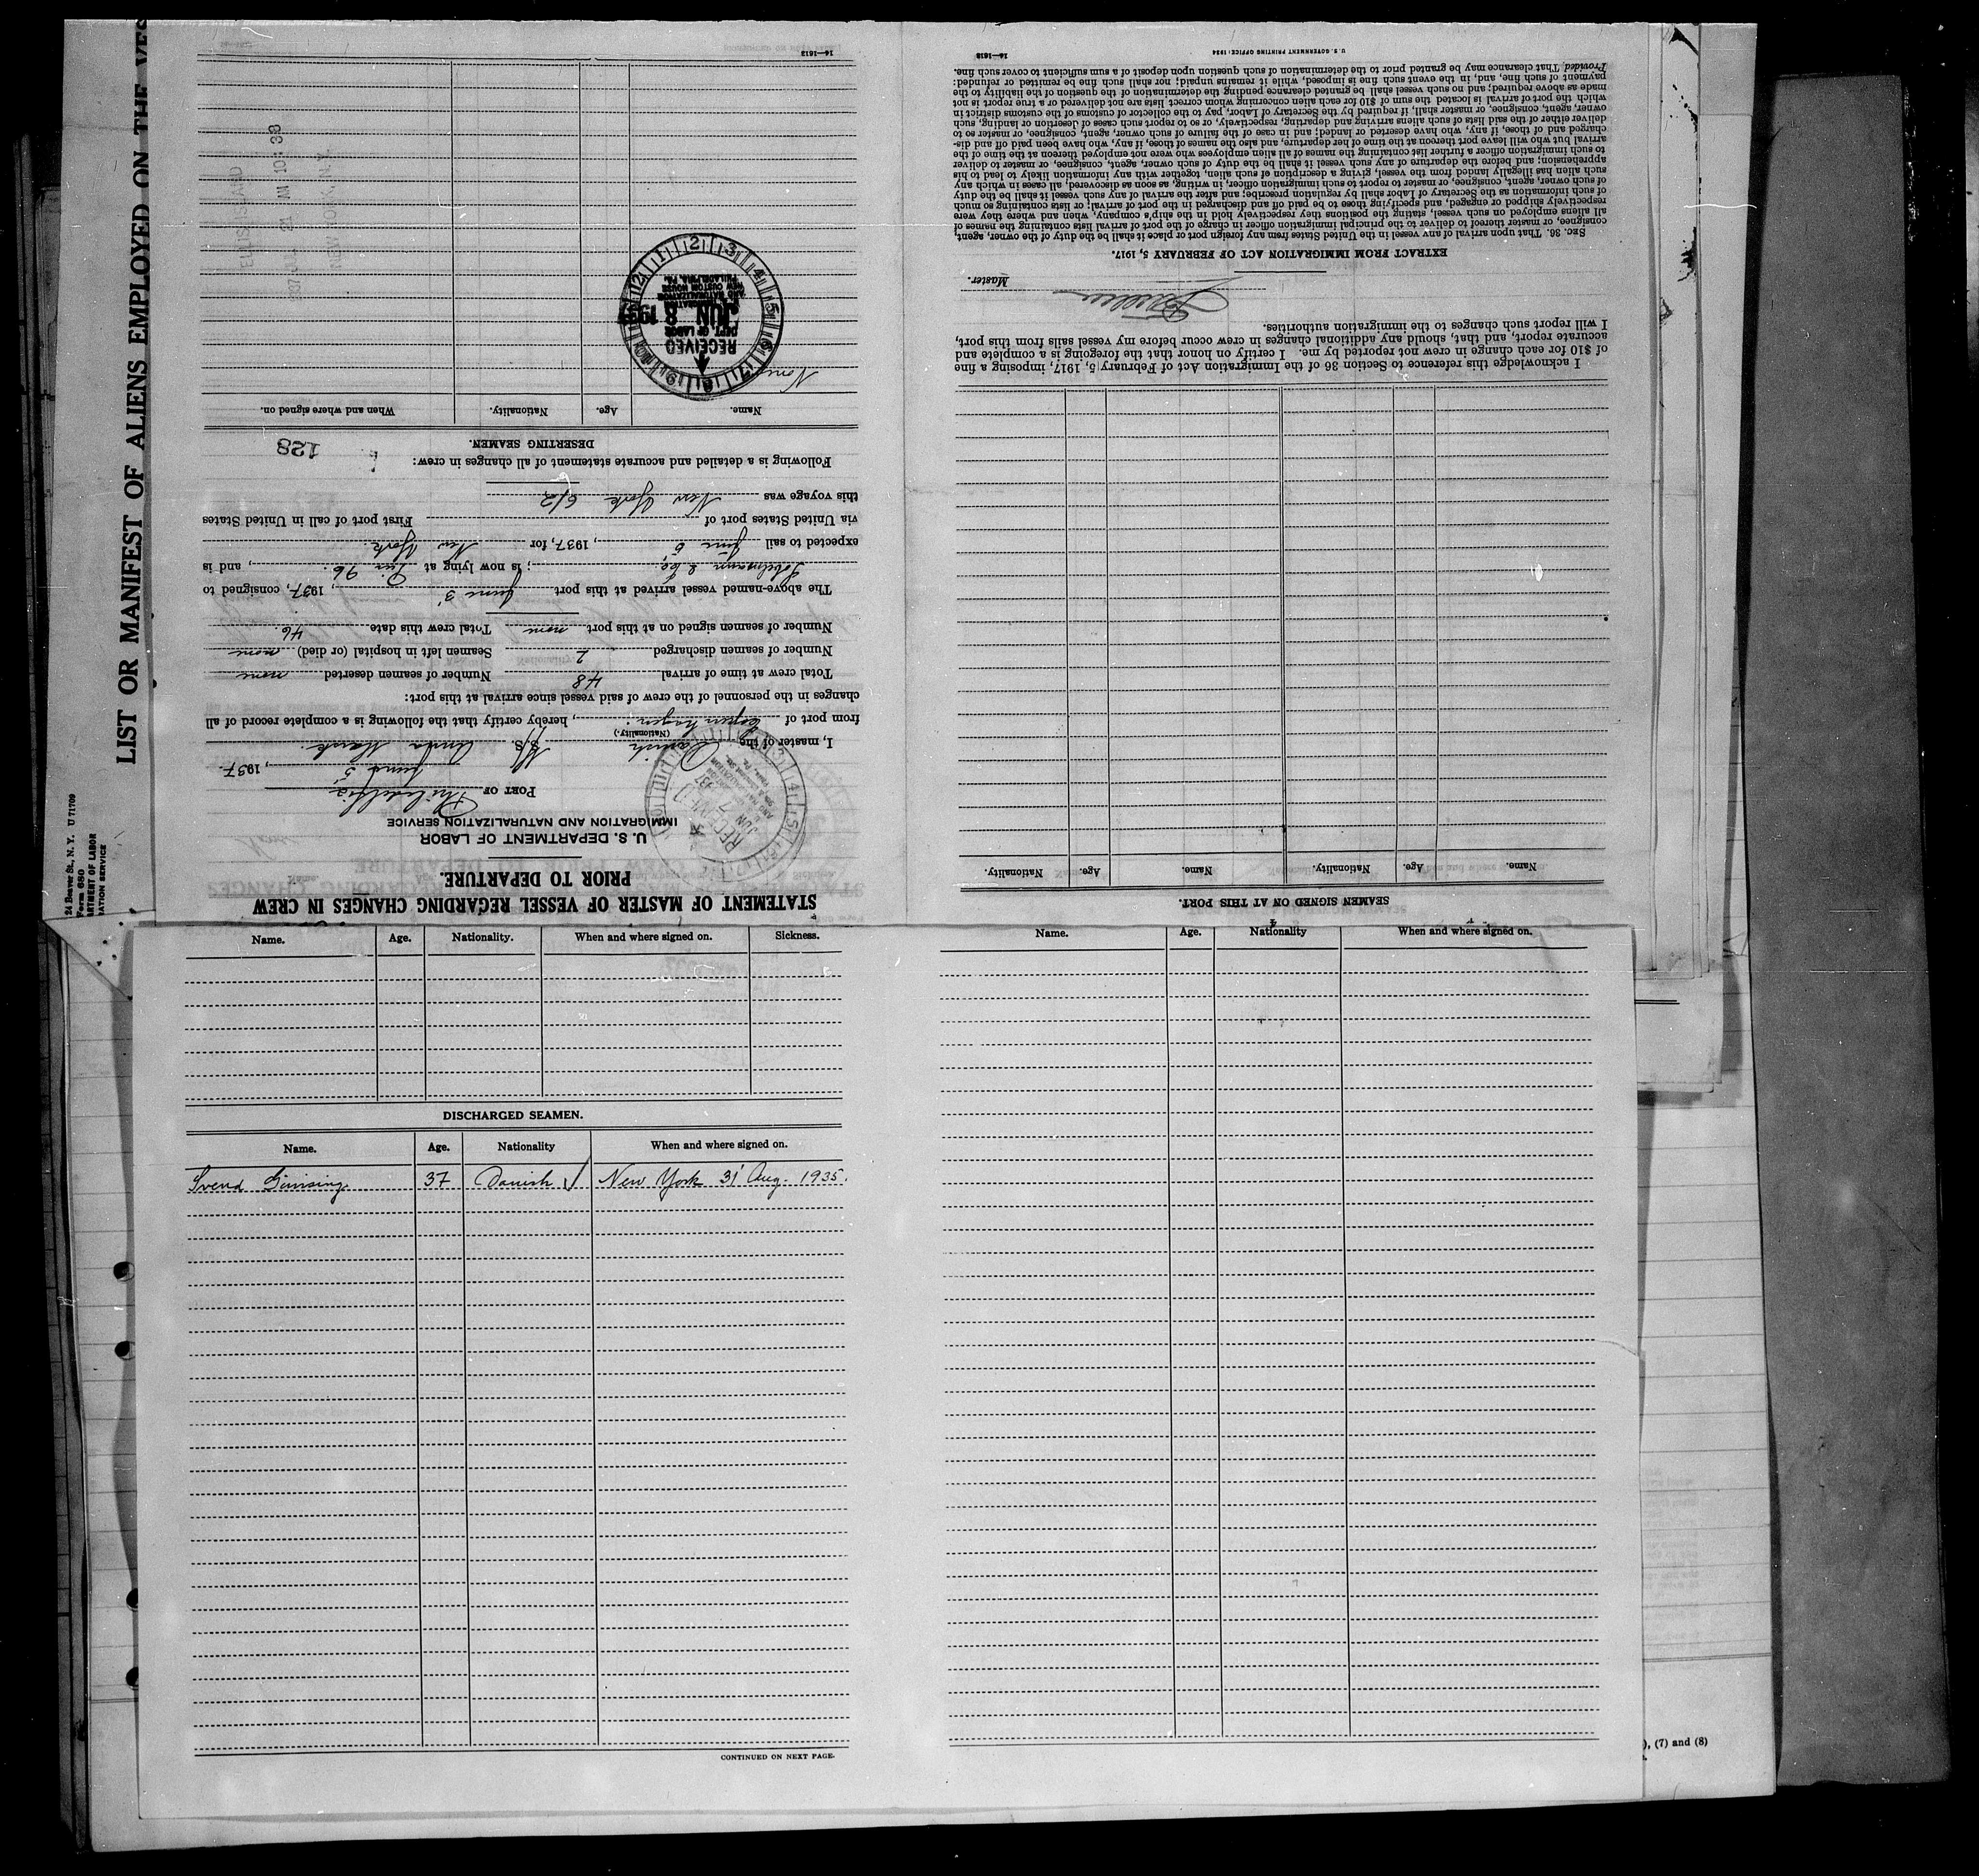 LIST OR MANIFEST OF ALIENS EMPLOYED ON THE VES
24 Beaver St., N. Y. U 71709
Form 680
ARTMENT OF LABOR
ATION SERVICE
STATEMENT OF MASTER OF VESSEL REGARDING CHANGES IN CREW
PRIOR TO DEPARTURE.
U. S. DEPARTMENT OF LABOR
IMMIGRATION AND NATURALIZATION SERVICE
PORT OF Philadelphia
June 5, 1937.
I, master of the Danish M/S Anna Mærsk
(Nationality.)
from port of Copenhagen, hereby certify that the following is a complete record of all
changes in the personnel of the crew of said vessel since arrival at this port:
Total crew at time of arrival 48 Number of seamen deserted none
Number of seamen discharged 2 Seamen left in hospital (or died) none
Number of seamen signed on at this port none Total crew this date 46.
The above-named vessel arrived at this port June 3, 1937, consigned to
& Co.; is now lying at Pier 96., and is
expected to sail June 6, 1937, for New York.
via United States port of First port of call in United States
this voyage was New York 6/2
Following is a detailed and accurate statement of all changes in crew:
128
DESERTING SEAMEN.
Name. Age. Nationality. When and where signed on.
None
RECEIVED
DEPT. OF LABOR
JUN 8 1937
IMMIGRATION
AND NATURALIZATION
NEW CUSTOM HOUSE
PHILADELPHIA, PA.
ELLIS ISLAND
NEW YORK, N.Y.
14—1613
SEAMEN SIGNED ON AT THIS PORT.
Name. Age. Nationality. Name. Age. Nationality.
I acknowledge this reference to Section 36 of the Immigration Act of February 5, 1917, imposing a fine
of $10 for each change in crew not reported by me. I certify on honor that the foregoing is a complete and
accurate report, and that, should any additional changes in crew occur before my vessel sails from this port,
I will report such changes to the immigration authorities.
Master.
EXTRACT FROM IMMIGRATION ACT OF FEBRUARY 5, 1917.
SEC. 36. That upon arrival of any vessel in the United States from any foreign port or place it shall be the duty of the owner, agent,
consignee, or master thereof to deliver to the principal immigration officer in charge of the port of arrival lists containing the names of
all aliens employed on such vessel, stating the positions they respectively hold in the ship's company, when and where they were
respectively shipped or engaged, and specifying those to be paid off and discharged in the port of arrival; or lists containing so much
of such information as the Secretary of Labor shall by regulation prescribe; and after the arrival of any such vessel it shall be the duty
of such owner, agent, consignee, or master to report to such immigration officer, in writing, as soon as discovered, all cases in which any
such alien has illegally landed from the vessel, giving a description of such alien, together with any information likely to lead to his
apprehension; and before the departure of any such vessel it shall be the duty of such owner, agent, consignee, or master to deliver
to such immigration officer a further list containing the names of all alien employees who were not employed thereon at the time of the
arrival but who will leave port thereon at the time of her departure, and also the names of those, if any, who have been paid off and dis-
charged and of those, if any, who have deserted or landed; and in case of the failure of such owner, agent, consignee, or master so to
deliver either of the said lists of such aliens arriving and departing, respectively, or so to report such cases of desertion or landing, such
owner, agent, consignee, or master shall, if required by the Secretary of Labor, pay to the collector of customs of the customs district in
which the port of arrival is located the sum of $10 for each alien concerning whom correct lists are not delivered or a true report is not
made as above required; and no such vessel shall be granted clearance pending the determination of the question of the liability to the
payment of such fine, and, in the event such fine is imposed, while it remains unpaid; nor shall such fine be remitted or refunded:
Provided, That clearance may be granted prior to the determination of such question upon deposit of a sum sufficient to cover such fine.
14—1613 U. S. GOVERNMENT PRINTING OFFICE: 1934
Name. Age. Nationality. When and where signed on. Sickness.
DISCHARGED SEAMEN.
Name. Age. Nationality When and where signed on.
Svend 37 Danish New York 31' Aug. 1935.
CONTINUED ON NEXT PAGE.
Name. Age. Nationality When and where signed on.
), (7) and (8)